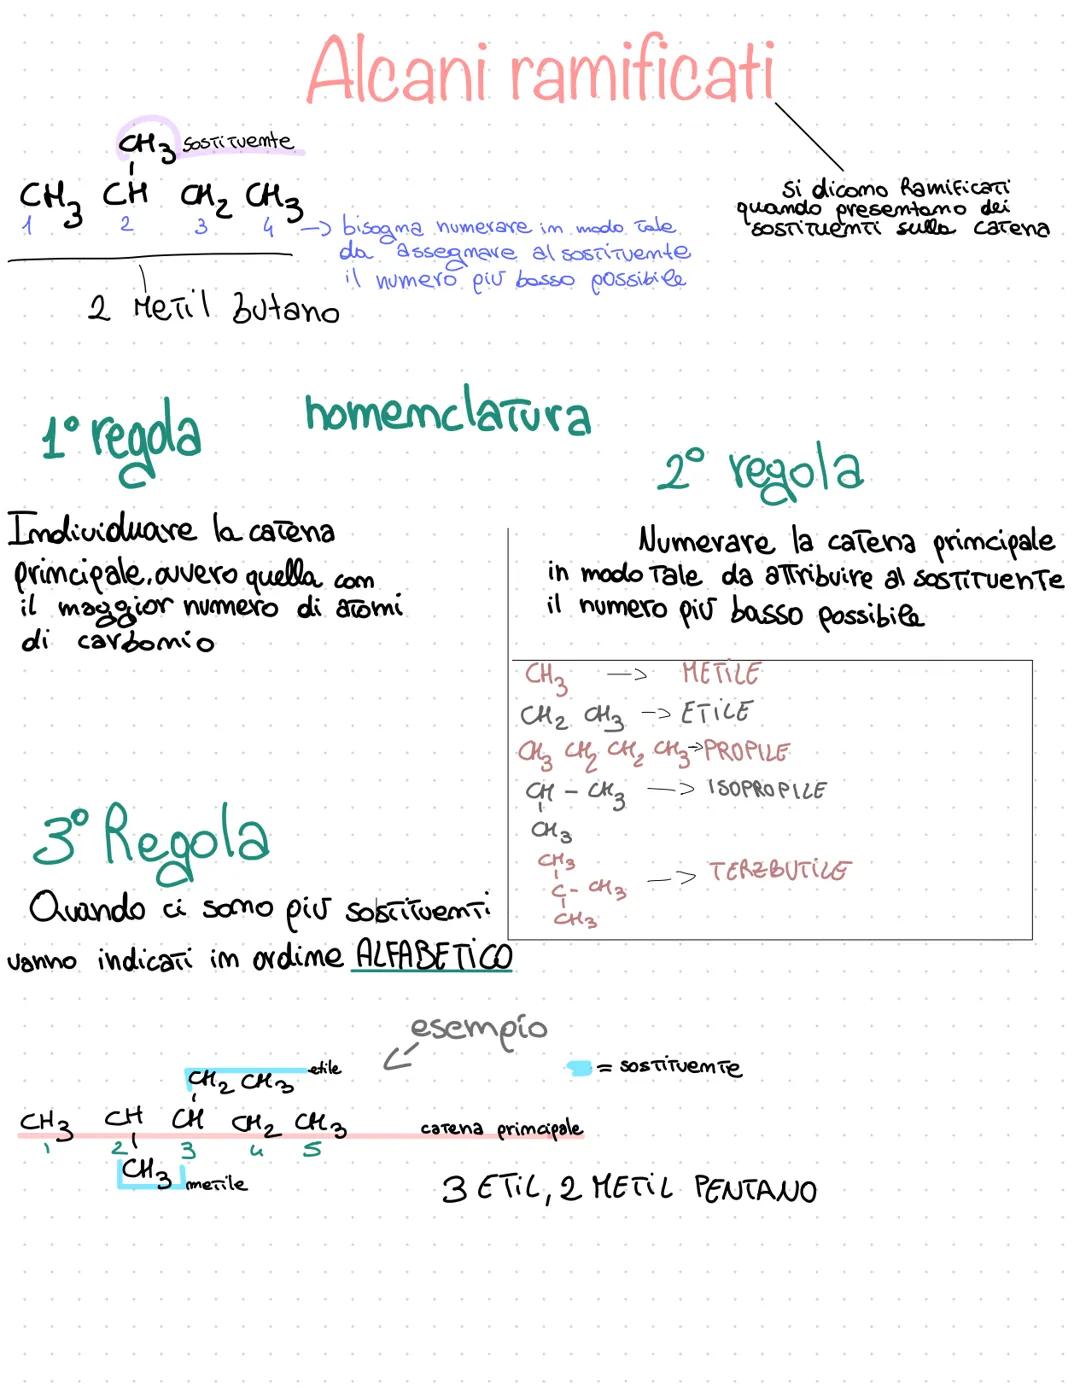 Alcani ramificati
CH3 sostituente
CH3 CH CH2 CH3
1 2 3 4 -> bisogna numerare in modo tale
da assegnare al sostituente
il numero più basso possibile
2 Metil butano
Si dicono Ramificati
quando presentano dei
sostituenti sulla catena
nomenclatura
1° regola
Individuare la catena
principale, ovvero quella con
il maggior numero di atomi
di carbonio
2° regola
Numerare la catena principale
in modo tale da attribuire al sostituente
il numero più basso possibile
CH3 —> METILE
CH2 CH3 —> ETILE
CH3 CH2 CH2 CH3 -> PROPILE
CH - CH3 —> ISOPROPILE
CH3
CH3
C - CH3 —> TERZBUTILE
CH3
3° Regola
Quando ci sono più sostituenti
vanno indicati in ordine ALFABETICO
esempio
CH2 CH3 etile
= sostituente
CH3 CH CH CH2 CH3 catena principale
1 2 3 4 5
CH3 metile
3 ETIL, 2 METIL PENTANO